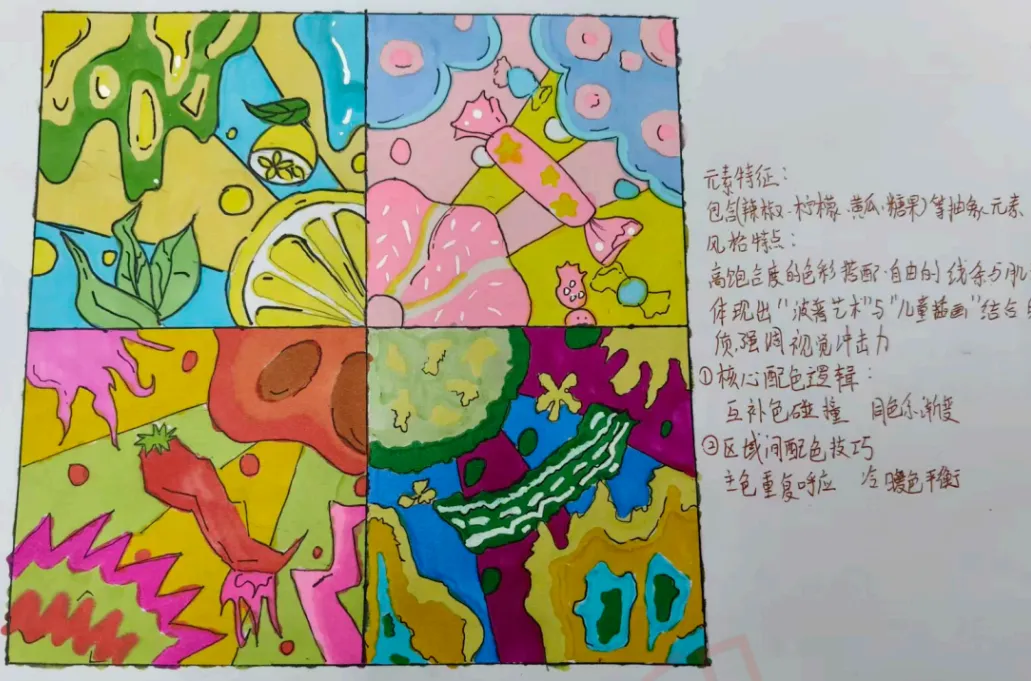 元素特征：
包含辣椒、柠檬、黄瓜、糖果)等抽象元素
风格特点：
高饱合度的色彩搭配、自由的线条与肌
体现出“波普艺术”与“儿童插画”结合
质，强调视觉冲击力
①核心配色逻辑：
互补色碰撞 同色系渐变
②区域间配色技巧
主色重复呼应 冷暖色平衡